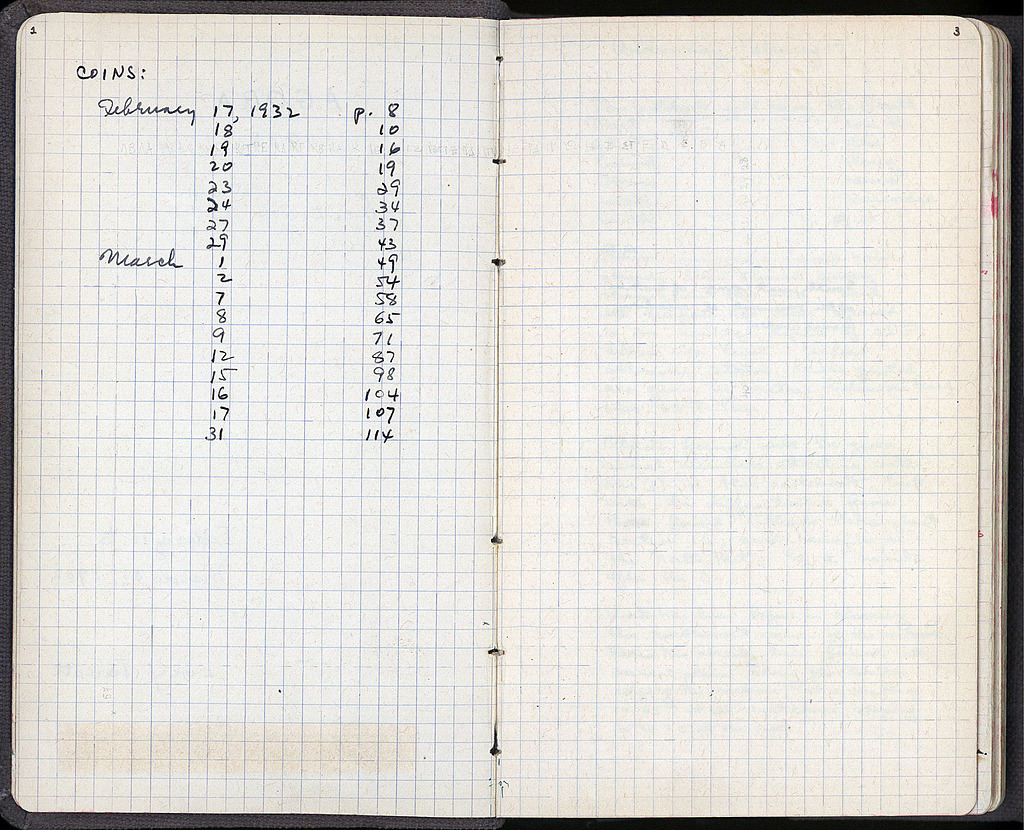 2
COINS:
February 17, 1932 p. 8
18 10
19 16
20 19
23 29
24 34
27 37
29 43
March 1 49
2 54
7 58
8 65
9 71
12 87
15 98
16 104
17 107
31 114
3